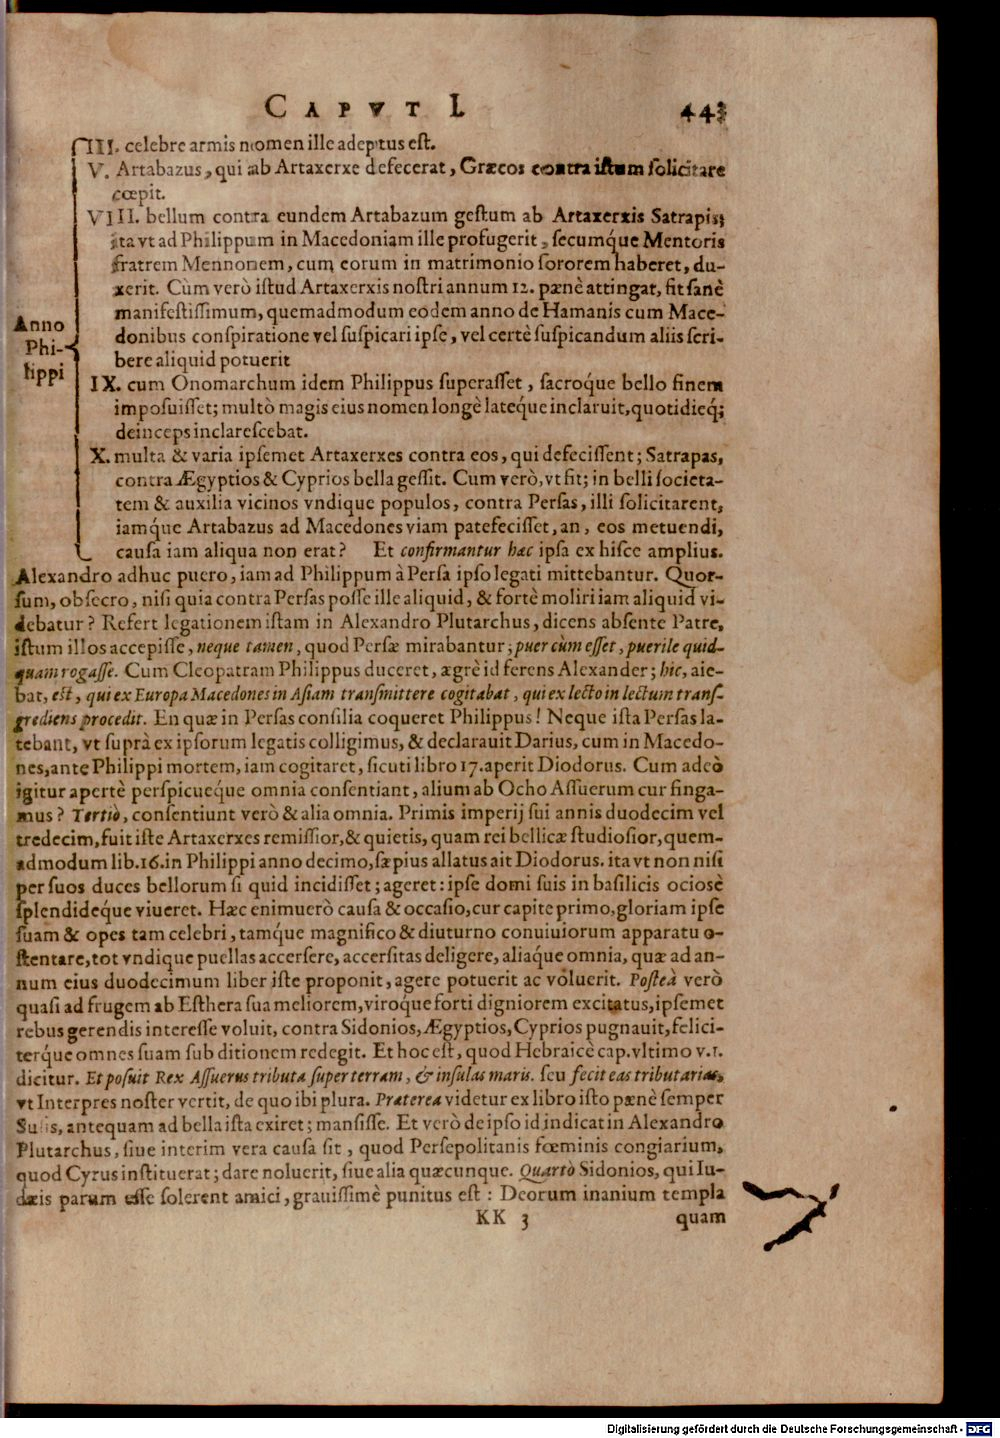 CAPVT I. 443
III. celebre armis nomen ille adeptus eſt.
V. Artabazus, qui ab Artaxerxe defecerat, Græcos contra iſtum ſolicitare
cœpit.
VIII. bellum contra eundem Artabazum geſtum ab Artaxerxis Satrapis;
ita vt ad Philippum in Macedoniam ille profugerit, ſecumq́ue Mentoris
fratrem Mennonem, cum eorum in matrimonio ſororem haberet, du-
xerit. Cùm verò iſtud Artaxerxis noſtri annum 12. pænè attingat, fit ſanè
manifeſtiſſimum, quemadmodum eodem anno de Hamanis cum Mace-
donibus conſpiratione vel ſuſpicari ipſe, vel certè ſuſpicandum aliis ſcri-
bere aliquid potuerit
Anno
Phi-
lippi
IX. cum Onomarchum idem Philippus ſuperaſſet, ſacroque bello finem
impoſuiſſet; multò magis eius nomen longè lateq́ue inclaruit, quotidieq́;
deinceps inclareſcebat.
X. multa & varia ipſemet Artaxerxes contra eos, qui defeciſſent; Satrapas,
contra Ægyptios & Cyprios bella geſſit. Cum verò, vt fit; in belli ſocieta-
tem & auxilia vicinos vndique populos, contra Perſas, illi ſolicitarent,
iamq́ue Artabazus ad Macedones viam patefeciſſet, an, eos metuendi,
cauſa iam aliqua non erat? Et confirmantur hæc ipſa ex hiſce amplius.
Alexandro adhuc puero, iam ad Philippum à Perſa ipſo legati mittebantur. Quor-
ſum, obſecro, niſi quia contra Perſas poſſe ille aliquid, & fortè moliri iam aliquid vi-
debatur? Refert legationem iſtam in Alexandro Plutarchus, dicens abſente Patre,
iſtum illos accepiſſe, neque tamen, quod Perſæ mirabantur; puer cùm eſſet, puerile quid-
quam rogaſſe. Cum Cleopatram Philippus duceret, ægrè id ferens Alexander; hic, aie-
bat, eſt, qui ex Europa Macedones in Aſiam tranſmittere cogitabat, qui ex lecto in lectum tranſ-
grediens procedit. En quæ in Perſas conſilia coqueret Philippus! Neque iſta Perſas la-
tebant, vt ſuprà ex ipſorum legatis colligimus, & declarauit Darius, cum in Macedo-
nes, ante Philippi mortem, iam cogitaret, ſicuti libro 17. aperit Diodorus. Cum adeò
igitur apertè perſpicueque omnia conſentiant, alium ab Ocho Aſſuerum cur finga-
mus? Tertiò, conſentiunt verò & alia omnia. Primis imperij ſui annis duodecim vel
tredecim, fuit iſte Artaxerxes remiſſior, & quietis, quam rei bellicæ ſtudioſior, quem-
admodum lib. 16. in Philippi anno decimo, ſæpius allatus ait Diodorus. ita vt non niſi
per ſuos duces bellorum ſi quid incidiſſet; ageret: ipſe domi ſuis in baſilicis ociosè
ſplendideque viueret. Hæc enimuerò cauſa & occaſio, cur capite primo, gloriam ipſe
ſuam & opes tam celebri, tamq́ue magnifico & diuturno conuiuiorum apparatu o-
ſtentare, tot vndique puellas accerſere, accerſitas deligere, aliaq́ue omnia, quæ ad an-
num eius duodecimum liber iſte proponit, agere potuerit ac voluerit. Poſteà verò
quaſi ad frugem ab Eſthera ſua meliorem, viroque forti digniorem excitatus, ipſemet
rebus gerendis intereſſe voluit, contra Sidonios, Ægyptios, Cyprios pugnauit, felici-
terq́ue omnes ſuam ſub ditionem redegit. Et hoc eſt, quod Hebraicè cap. vltimo v. 1.
dicitur. Et poſuit Rex Aſſuerus tributa ſuper terram, & inſulas maris. ſeu fecit eas tributarias,
vt Interpres noſter vertit, de quo ibi plura. Præterea videtur ex libro iſto pænè ſemper
Suſis, antequam ad bella iſta exiret; manſiſſe. Et verò de ipſo id indicat in Alexandro
Plutarchus, ſiue interim vera cauſa ſit, quod Perſepolitanis fœminis congiarium,
quod Cyrus inſtituerat; dare noluerit, ſiue alia quæcunque. Quartò Sidonios, qui Iu-
dæis parum eſſe ſolerent amici, grauiſſimè punitus eſt: Deorum inanium templa
KK 3 quam
Digitalisierung gefördert durch die Deutsche Forschungsgemeinschaft - DFG